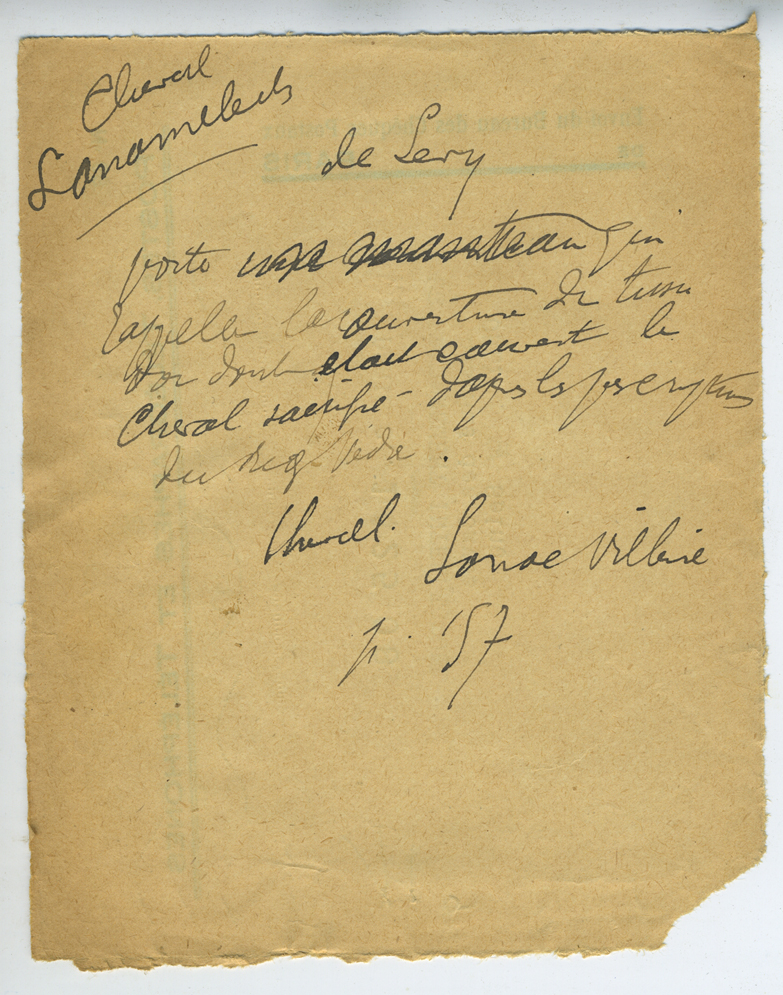 Cheval
de Lery
porte une manteau qui
rappelle la couverture de tissu
d'or dont était couvert le
Cheval sacrifié d'après les prescriptions
du Rig Véda.
Cheval.
p. 57